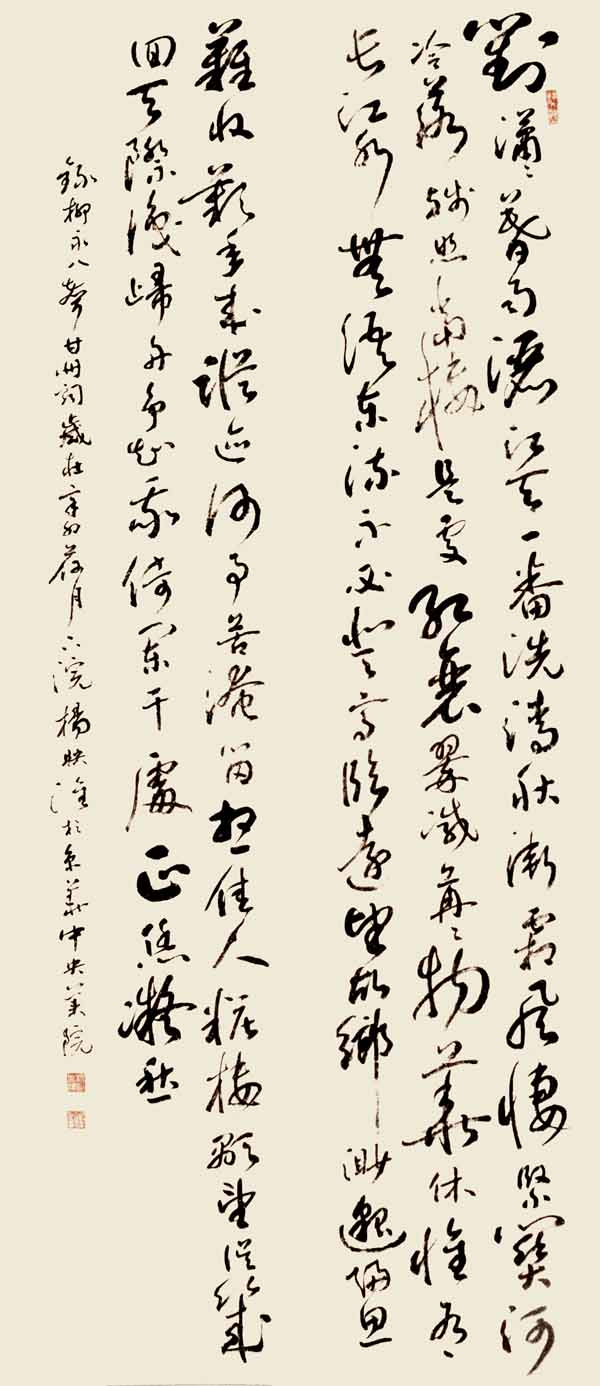 對瀟瀟暮雨灑江天一番洗清秋漸霜風悽緊關河
冷落殘照當樓是處紅衰翠減苒苒物華休惟有
長江水無語東流不忍登高臨遠望故鄉渺邈歸思
難收歎年來蹤迹何事苦淹留想佳人粧樓顒望誤幾
回天際識歸舟爭知我倚闌干處正恁凝愁
錄柳永八聲甘州詞歲在辛卯荷月下浣楊映淮於京華中央美院